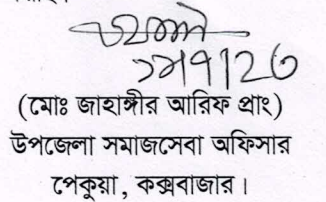 (মোঃ জাহাঙ্গীর আরিফ প্রাং)
উপজেলা সমাজসেবা অফিসার
পেকুয়া, কক্সবাজার।